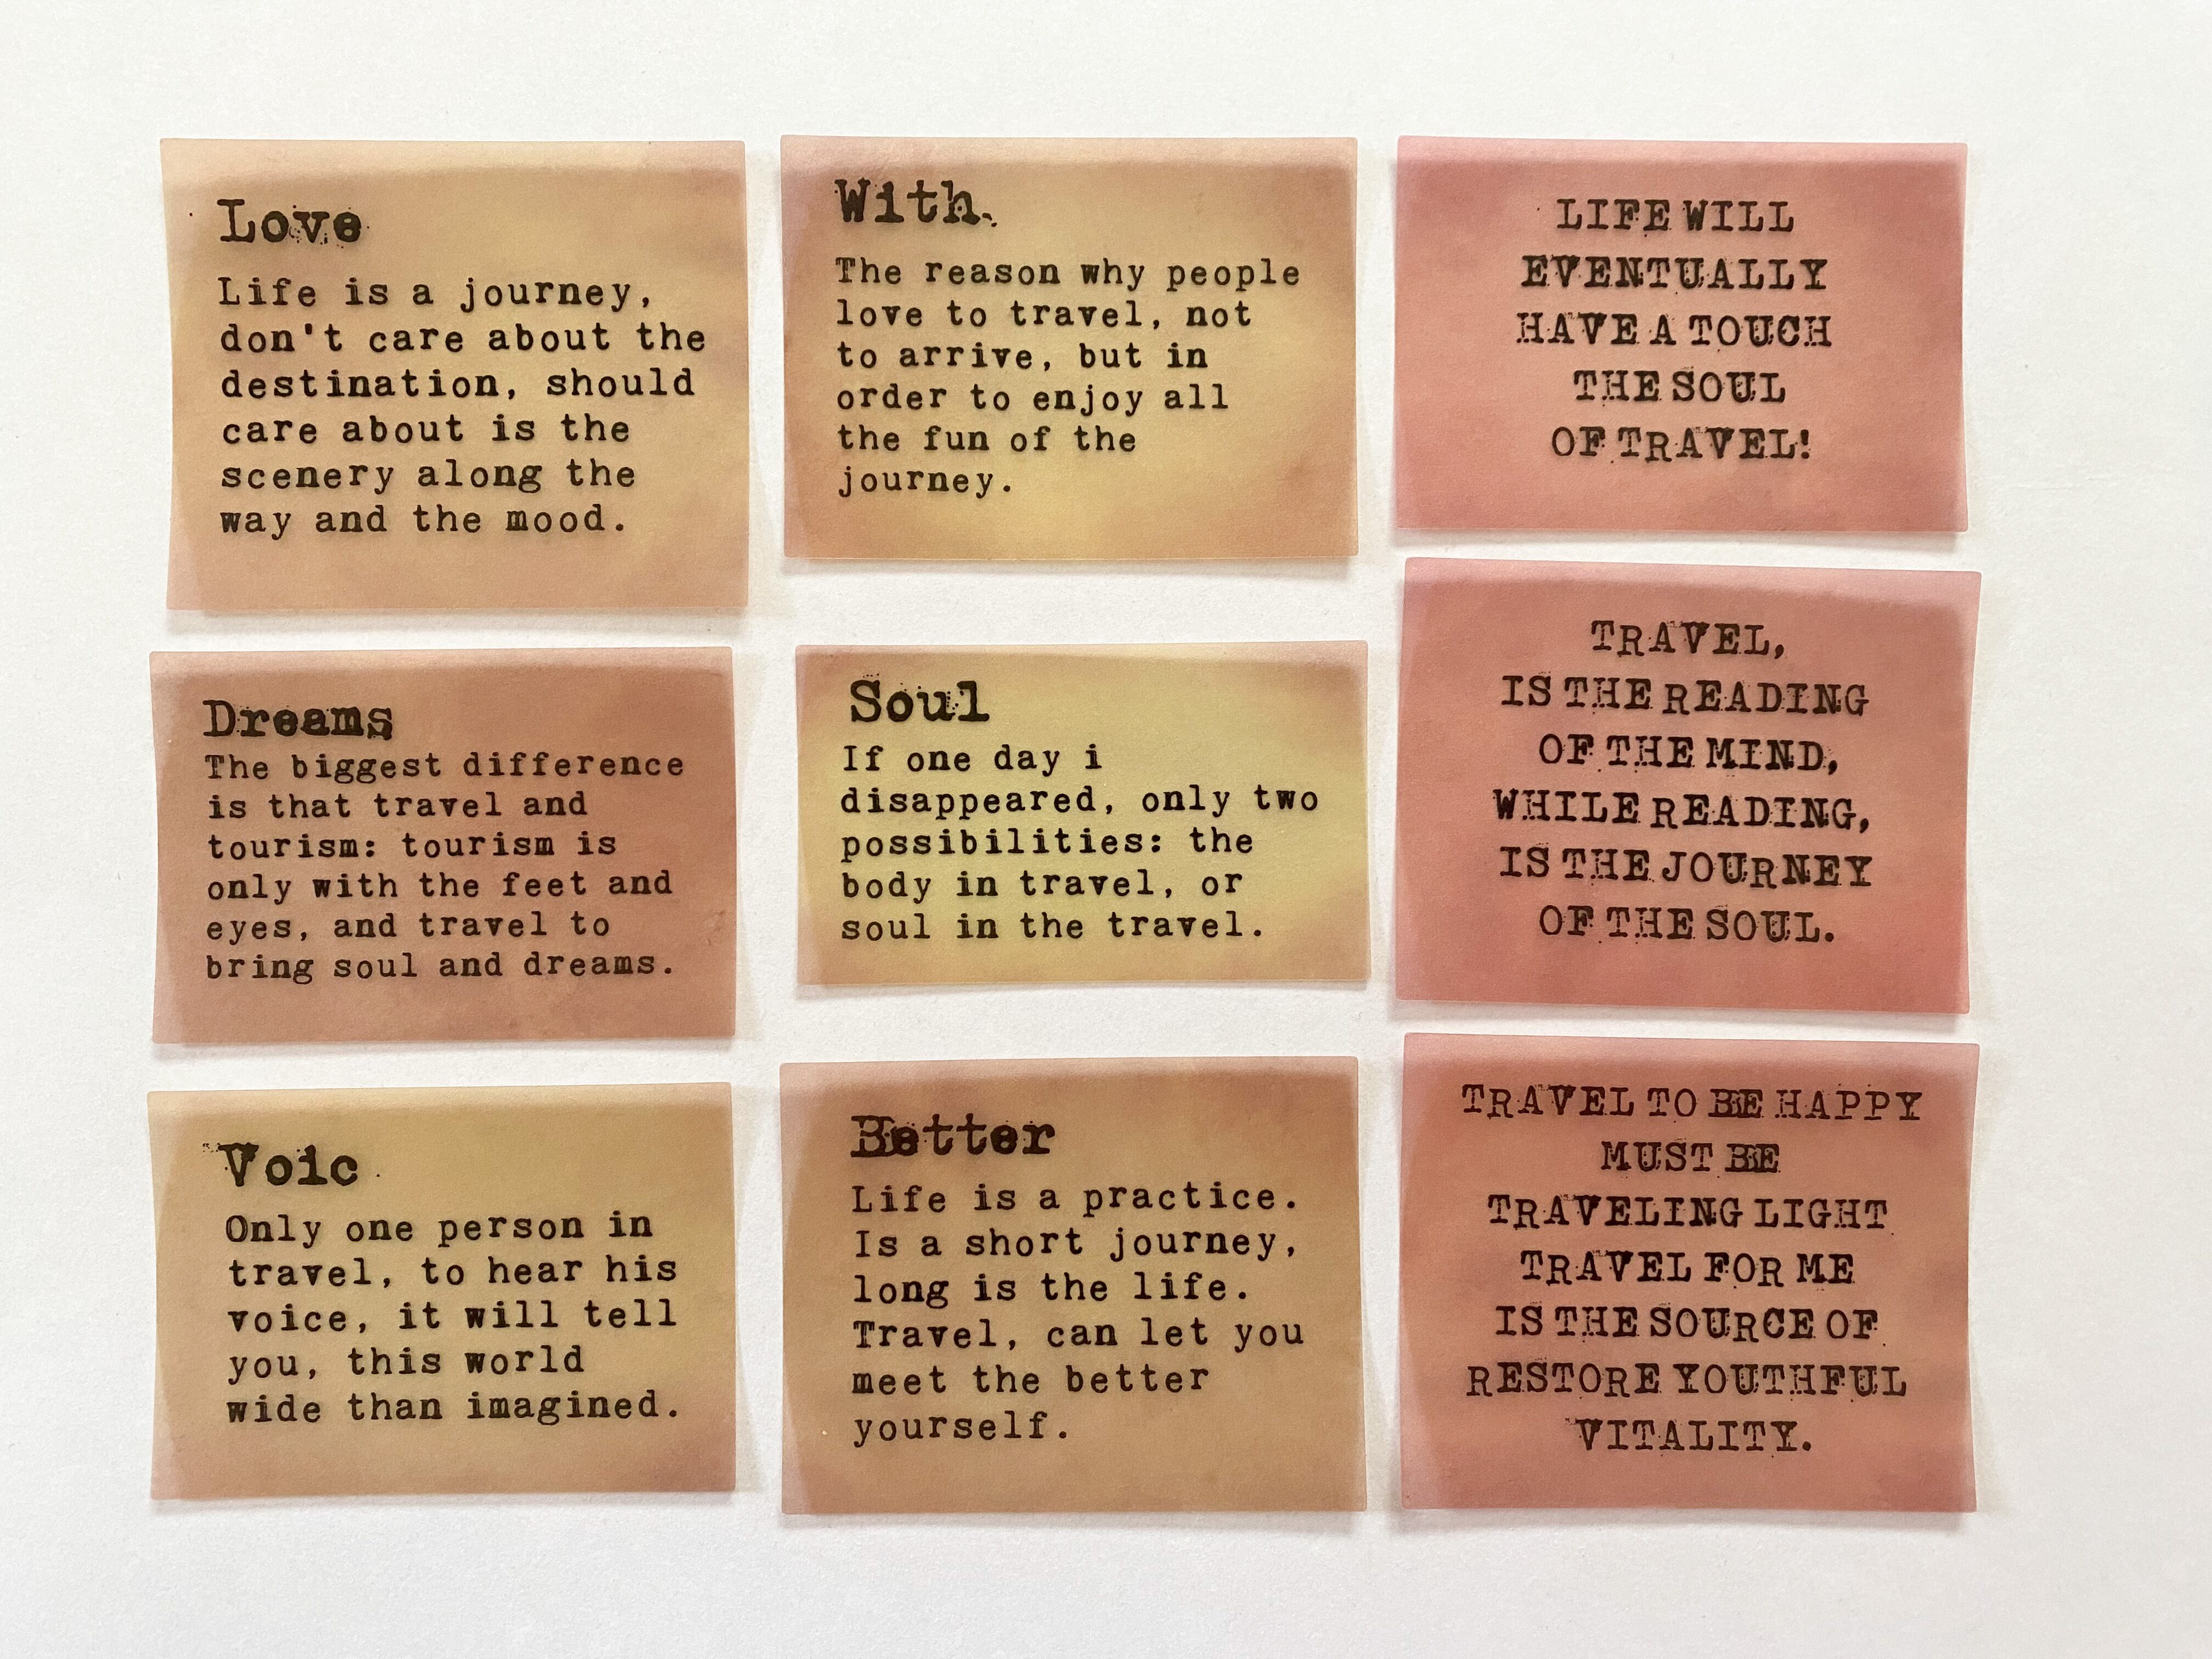 Love
Life is a journey,
don't care about the
destination, should
care about is the
scenery along the
way and the mood.
With
The reason why people
love to travel, not
to arrive, but in
order to enjoy all
the fun of the
journey.
LIFE WILL
EVENTUALLY
HAVE A TOUCH
THE SOUL
OF TRAVEL!
Dreams
The biggest difference
is that travel and
tourism: tourism is
only with the feet and
eyes, and travel to
bring soul and dreams.
Soul
If one day i
disappeared, only two
possibilities: the
body in travel, or
soul in the travel.
TRAVEL,
IS THE READING
OF THE MIND,
WHILE READING,
IS THE JOURNEY
OF THE SOUL.
Voic
Only one person in
travel, to hear his
voice, it will tell
you, this world
wide than imagined.
Better
Life is a practice.
Is a short journey,
long is the life.
Travel, can let you
meet the better
yourself.
TRAVEL TO BE HAPPY
MUST BE
TRAVELING LIGHT
TRAVEL FOR ME
IS THE SOURCE OF
RESTORE YOUTHFUL
VITALITY.